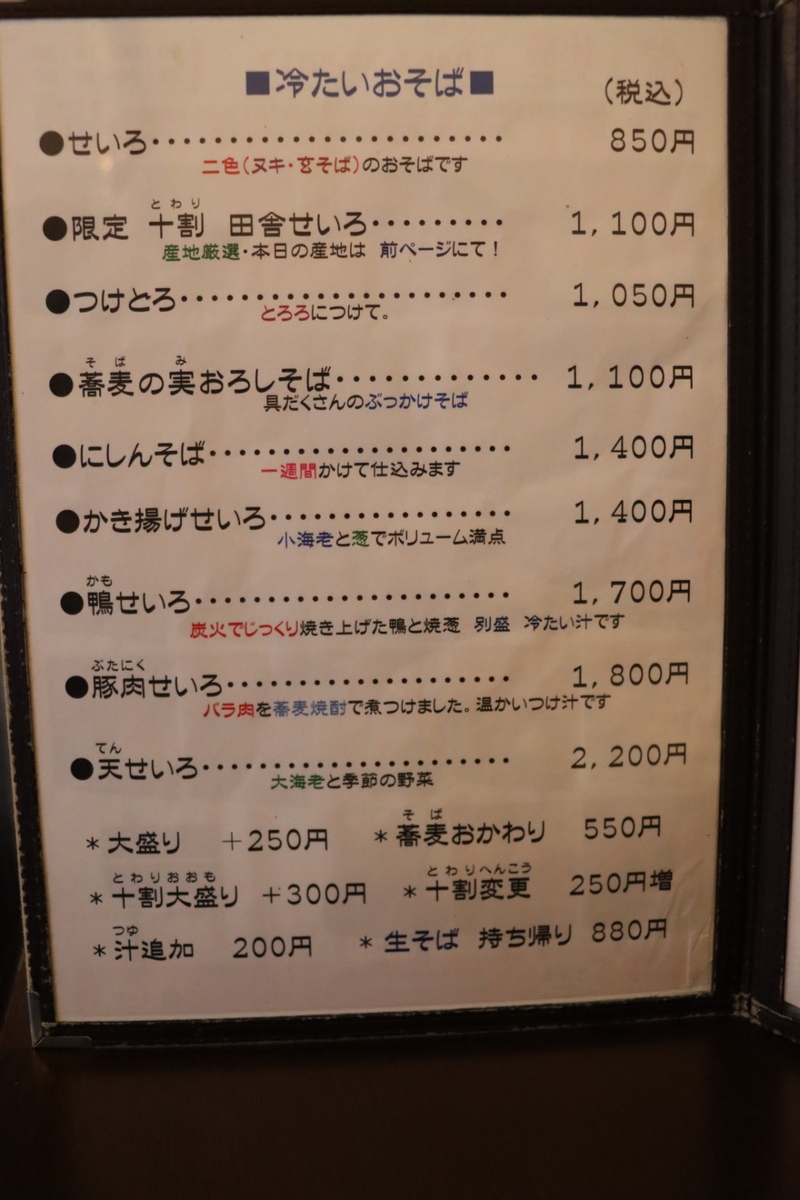 ■冷たいおそば■ (税込)
●せいろ······················· 850円
二色(ヌキ・玄そば)のおそばです
とわり
●限定 十割 田舎せいろ········· 1,100円
産地厳選・本日の産地は 前ページにて!
●つけとろ······················ 1,050円
とろろにつけて。
そば み
●蕎麦の実おろしそば············· 1,100円
具だくさんのぶっかけそば
●にしんそば····················· 1,400円
一週間かけて仕込みます
●かき揚げせいろ················· 1,400円
小海老と葱でボリューム満点
かも
●鴨せいろ······················ 1,700円
炭火でじっくり焼き上げた鴨と焼葱 別盛 冷たい汁です
ぶたにく
●豚肉せいろ···················· 1,800円
バラ肉を蕎麦焼酎で煮つけました。温かいつけ汁です
てん
●天せいろ······················ 2,200円
大海老と季節の野菜
そば
*大盛り +250円 *蕎麦おかわり 550円
とわりおおも とわりへんこう
*十割大盛り +300円 *十割変更 250円増
つゆ
*汁追加 200円 *生そば 持ち帰り 880円